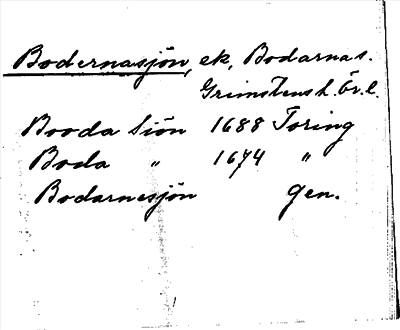 Bodernasjön, ek, Bodarnas.
Grimstens h. Ör. l.
Booda Siön 1688 Toring
Boda " 1674 "
Bodarnesjön Gen.